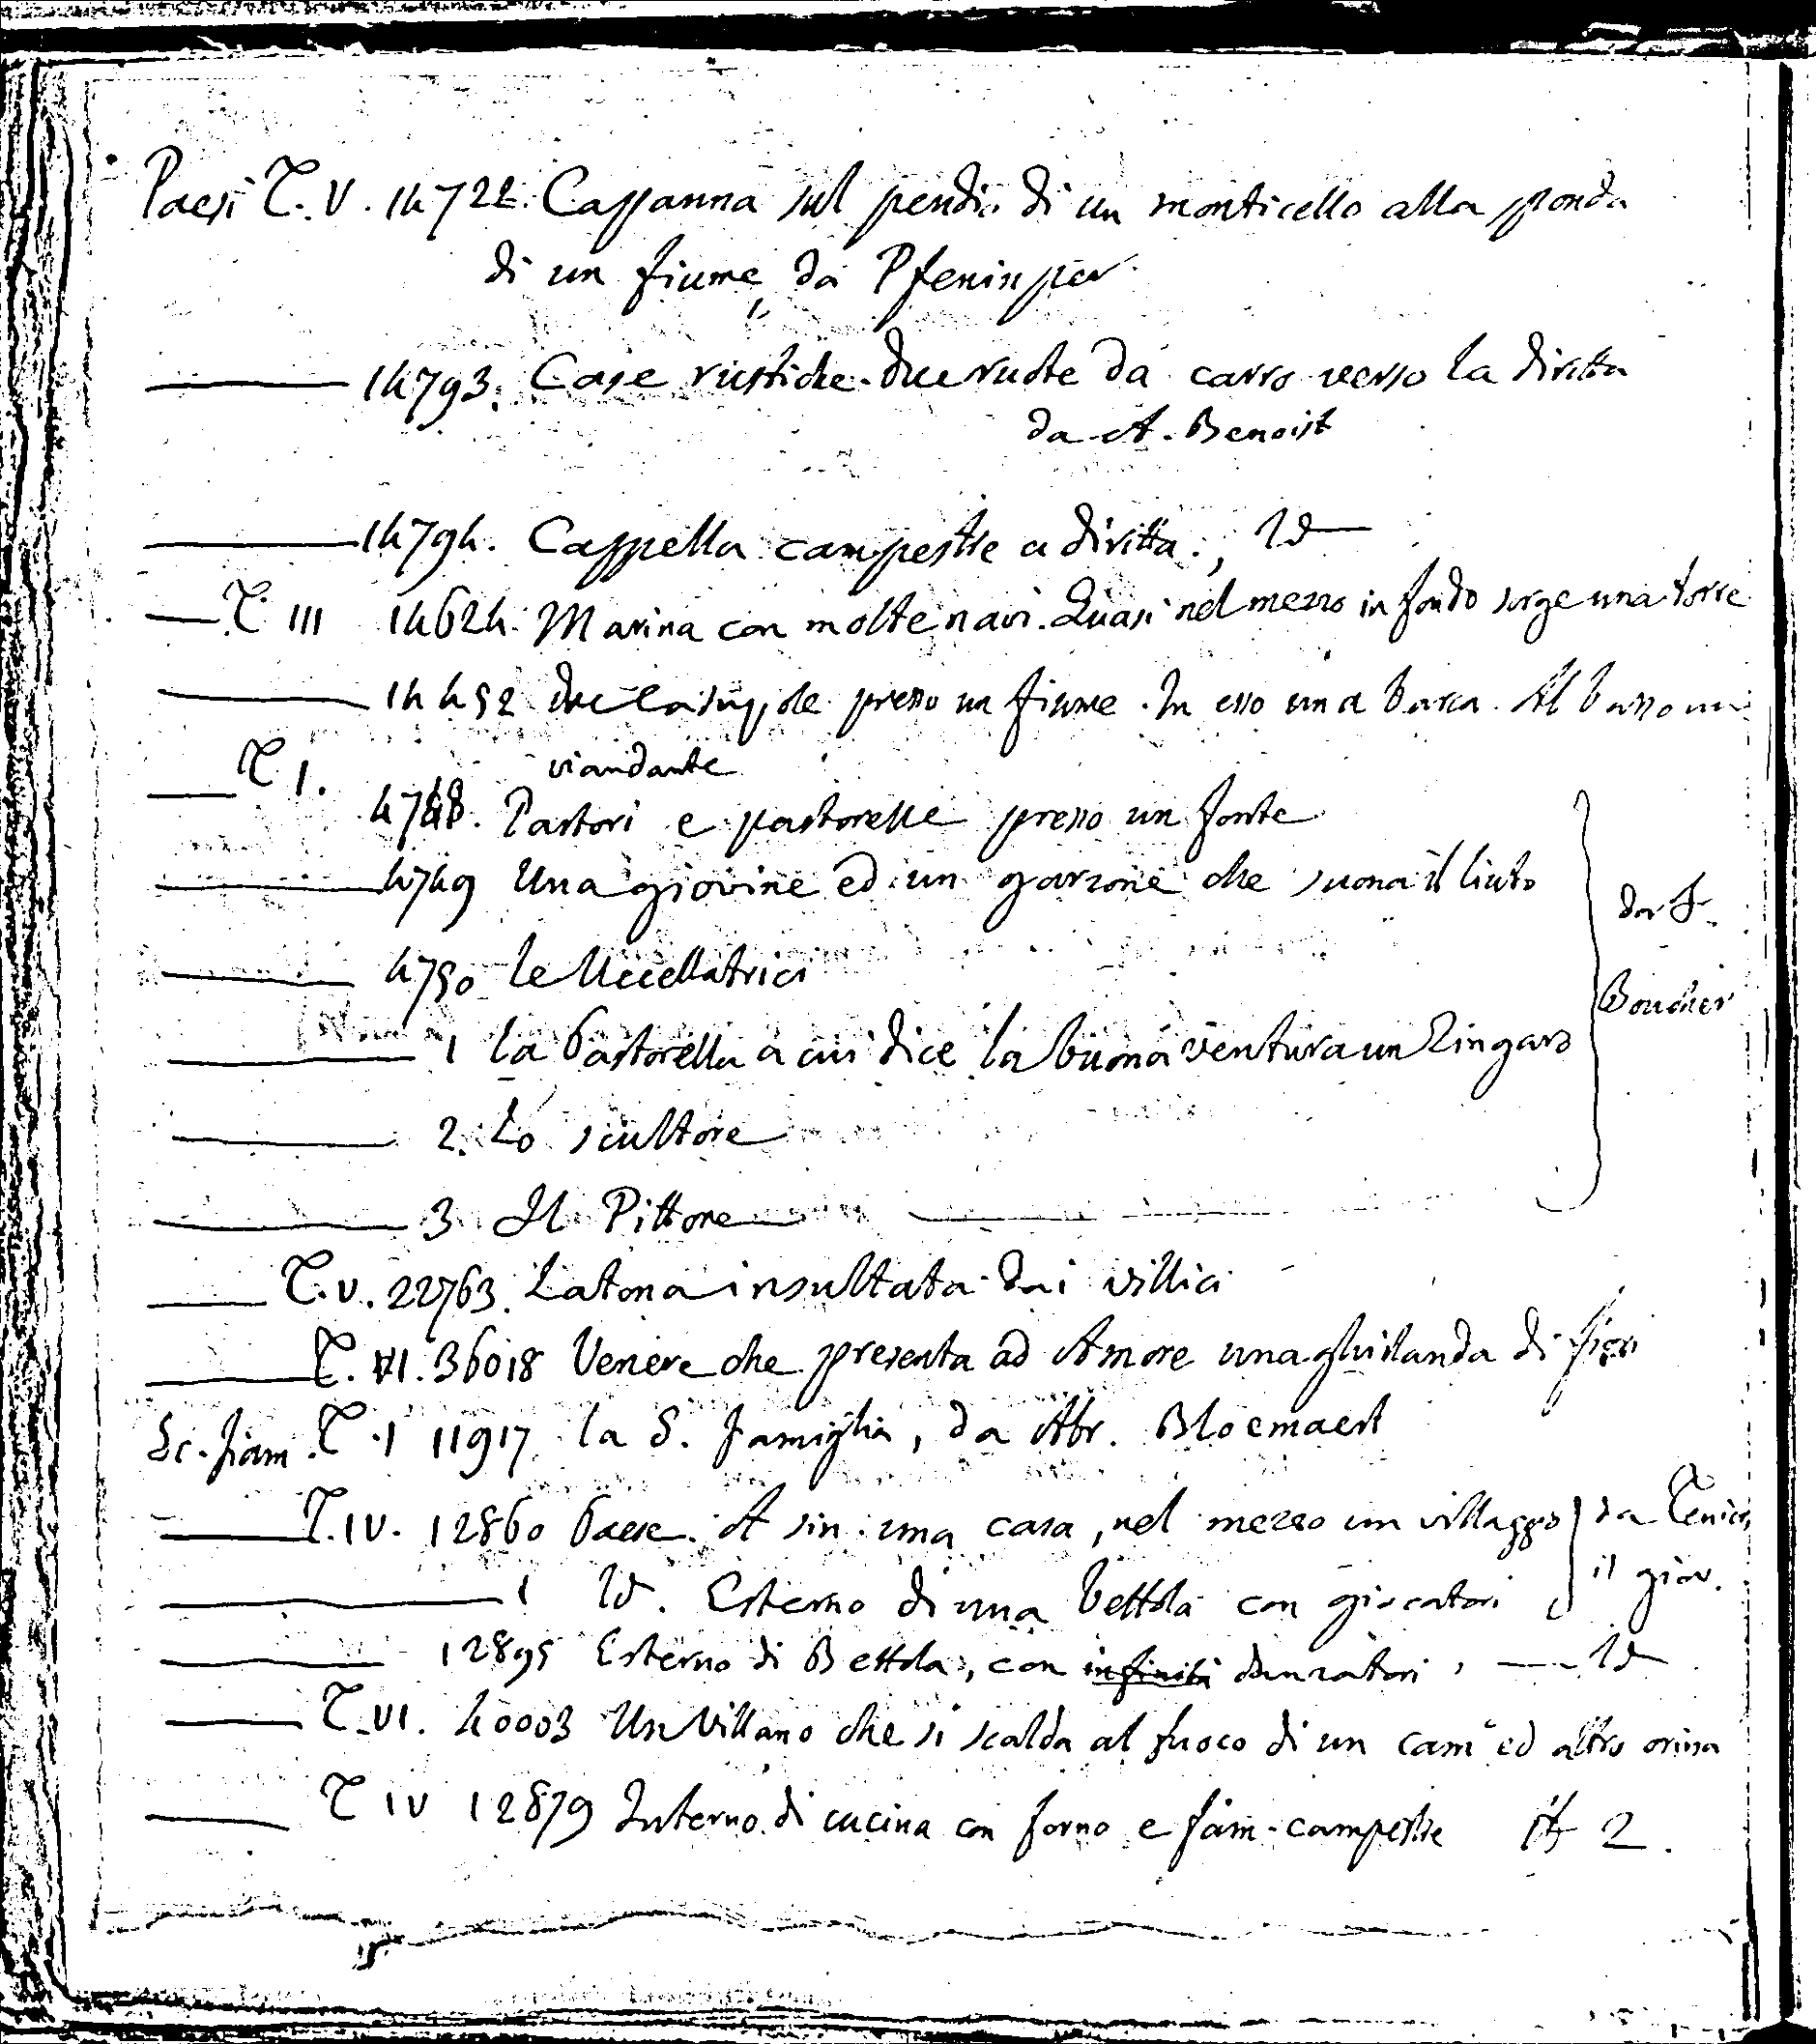 Paesi T. V. 14722. Cappanna sul pendio di un monticello alla sponda
di un fiume, da Pfeninger
14793. Case rustiche. due ruote da carro verso la diritta
da A. Benoist
14794. Cappella campestre a diritta., Id
T. III 14624. Marina con molte navi. Quasi nel mezzo in fondo sorge una torre
14452 due casuppole presso un fiume. In esso una barca. Al basso un
viandante
T I.
4748. Pastori e pastorelle presso un fonte
4749 Una giovine ed un garzone che suona il liuto
da F.
4750 le Uccellatrici
Boucher
1 la Pastorella a cui dice la buona ventura un Zingaro
2. Lo scultore
3 Il Pittore
T. V. 22763. Latona insultata dai villici
T. VI. 36018 Venere che presenta ad Amore una ghirlanda di fiori
Sc. fiam. T. I 11917 la S. Famiglia, da Abr. Bloemaert
T. IV. 12860 Paese. A sin. una casa, nel mezzo un villaggio da Teniers
il giov.
1 Id. Esterno di una bettola con giocatori
12895 Esterno di Bettola, con infiniti danzatori, Id
T. VI. 40003 Un Villano che si scalda al fuoco di un cam° ed altro orina
T IV 12879 Interno di cucina con forno e fam. campestre 2.